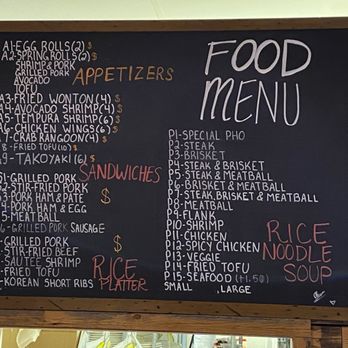 FOOD
MENU
A1-EGG ROLLS(2) $
A2-SPRING ROLLS(2) $
SHRIMP & PORK
GRILLED PORK
AVOCADO
TOFU
APPETIZERS
A3-FRIED WONTON(4) $
A4-AVOCADO SHRIMP(4) $
A5-TEMPURA SHRIMP(6) $
A6-CHICKEN WINGS(6) $
A7-CRAB RANGOON(4) $
A8-FRIED TOFU(10) $
A9-TAKOYAKI(6) $
SANDWICHES
S1-GRILLED PORK
S2-STIR-FRIED PORK
S3-PORK HAM & PATE $
S4-PORK HAM & EGG
S5-MEATBALL
S6-GRILLED PORK SAUSAGE
-GRILLED PORK $
-STIR-FRIED BEEF
-SAUTEE SHRIMP
-FRIED TOFU
-KOREAN SHORT RIBS
RICE
PLATTER
P1-SPECIAL PHO
P2-STEAK
P3-BRISKET
P4-STEAK & BRISKET
P5-STEAK & MEATBALL
P6-BRISKET & MEATBALL
P7-STEAK, BRISKET & MEATBALL
P8-MEATBALL
P9-FLANK
P10-SHRIMP
P11-CHICKEN
P12-SPICY CHICKEN
P13-VEGGIE
P14-FRIED TOFU
P15-SEAFOOD (+1.50)
SMALL , LARGE
RICE
NOODLE
SOUP